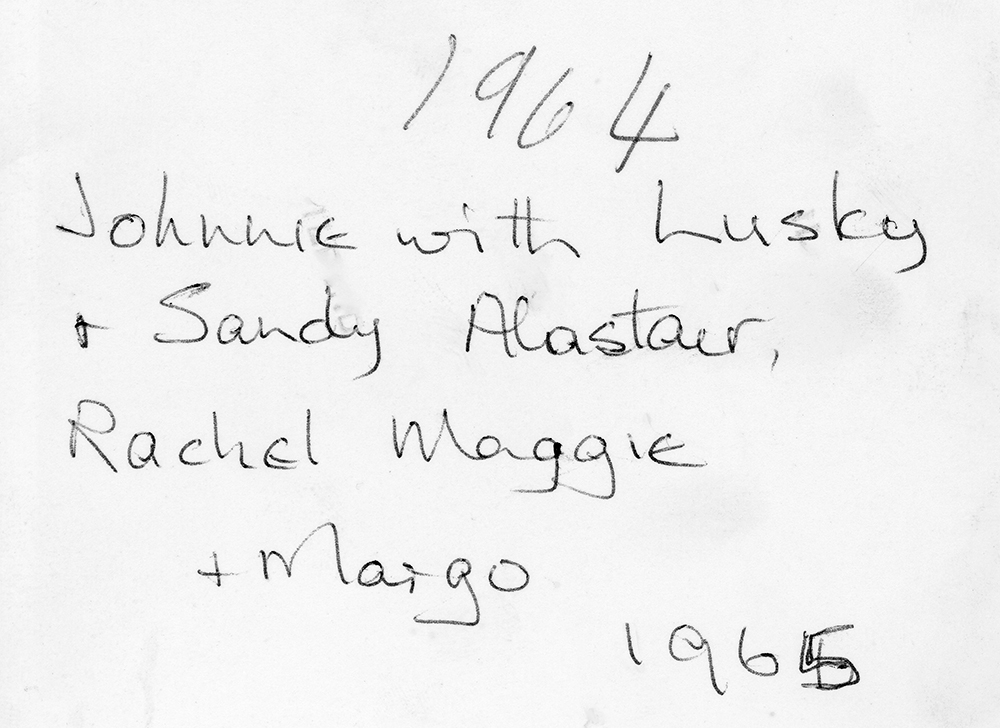 1964
Johnnie with Lusky
+ Sandy Alastair,
Rachel Maggie
+ Margo
1965